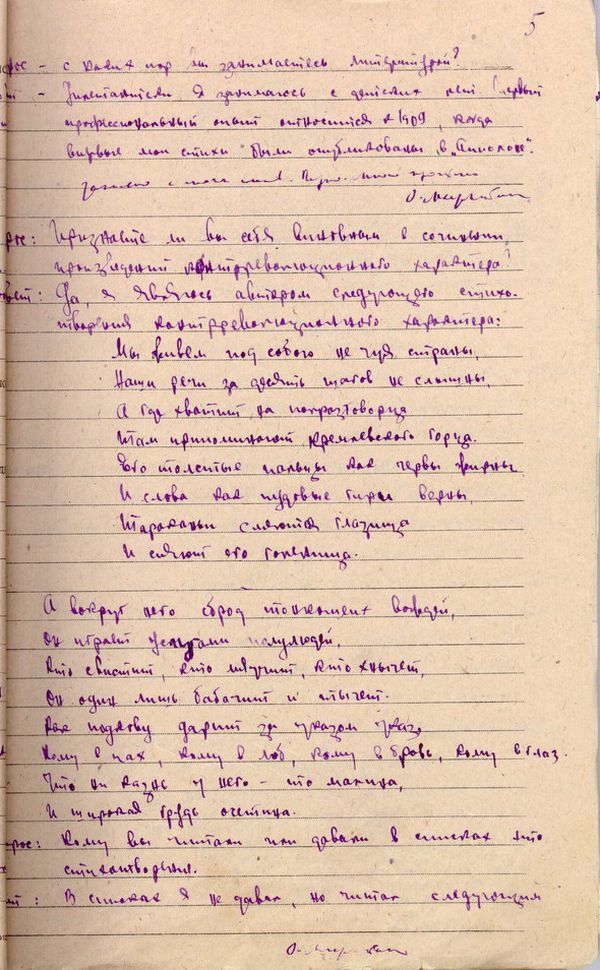 5
рос – с каких пор вы занимаетесь литературой?
– я занимаюсь с детских лет. Первый
профессиональный опыт относится к 1909, когда
впервые мои стихи были опубликованы в „Аполлоне“.
О. Мандельштам
рос: Признаете ли вы себя виновным в сочинении
произведений контрреволюционного характера?
вет: Да, я являюсь автором следующего стихо-
творения контрреволюционного характера:
Мы живем под собою не чуя страны,
Наши речи за десять шагов не слышны,
А где хватит на полразговорца
Там припоминают кремлевского горца.
Его толстые пальцы как черви жирны
И слова как пудовые гири верны,
Тараканьи смеются глазища
И сияют его голенища.
А вокруг него сброд тонкошеих вождей,
Он играет услугами полулюдей,
Кто свистит, кто мяучит, кто хнычет,
Он один лишь бабачит и тычет.
Как подкову дарит за указом указ,
Кому в пах, кому в лоб, кому в бровь, кому в глаз.
Что ни казнь у него – то малина,
И широкая грудь осетина.
рос: Кому вы читали или давали в списках это
стихотворение.
ет: В списках я не давал, но читал следующим
О. Мандельштам